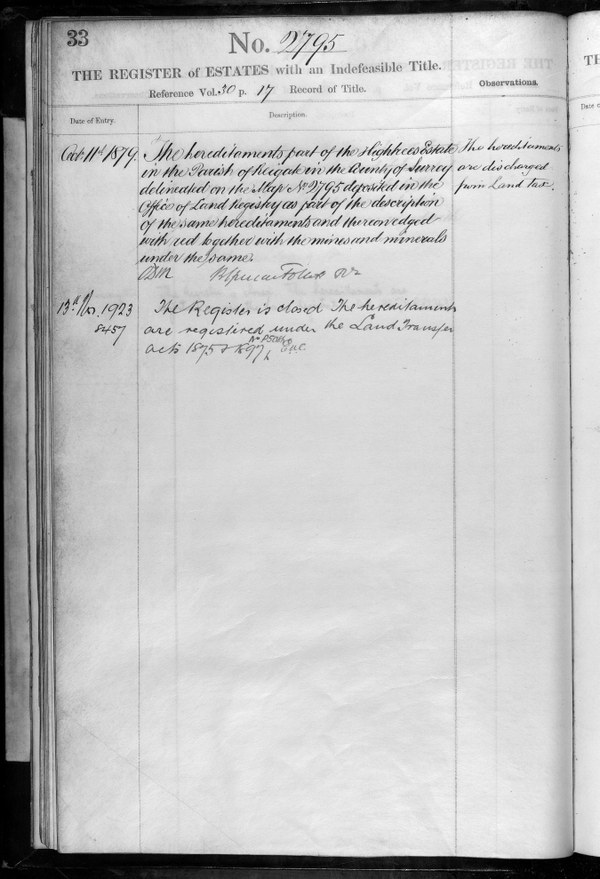 33
No. 2795
THE REGISTER of ESTATES with an Indefeasible Title.
Reference Vol. 30 p. 17 Record of Title.
Observations.
Date of Entry.
Description.
Octr. 11th 1879.
The hereditaments part of the Highlees Estate
in the Parish of Reigate in the County of Surrey
delineated on the Map No. 2795 deposited in the
Office of Land Registry as part of the description
of the same hereditaments and thereon edged
with red together with the mines and minerals
under the same.
The hereditaments
are discharged
from Land tax.
13th Nov. 1923
8457
The Register is closed The hereditaments
are registered under the Land Transfer
acts 1875 & 1897
TH
Date of